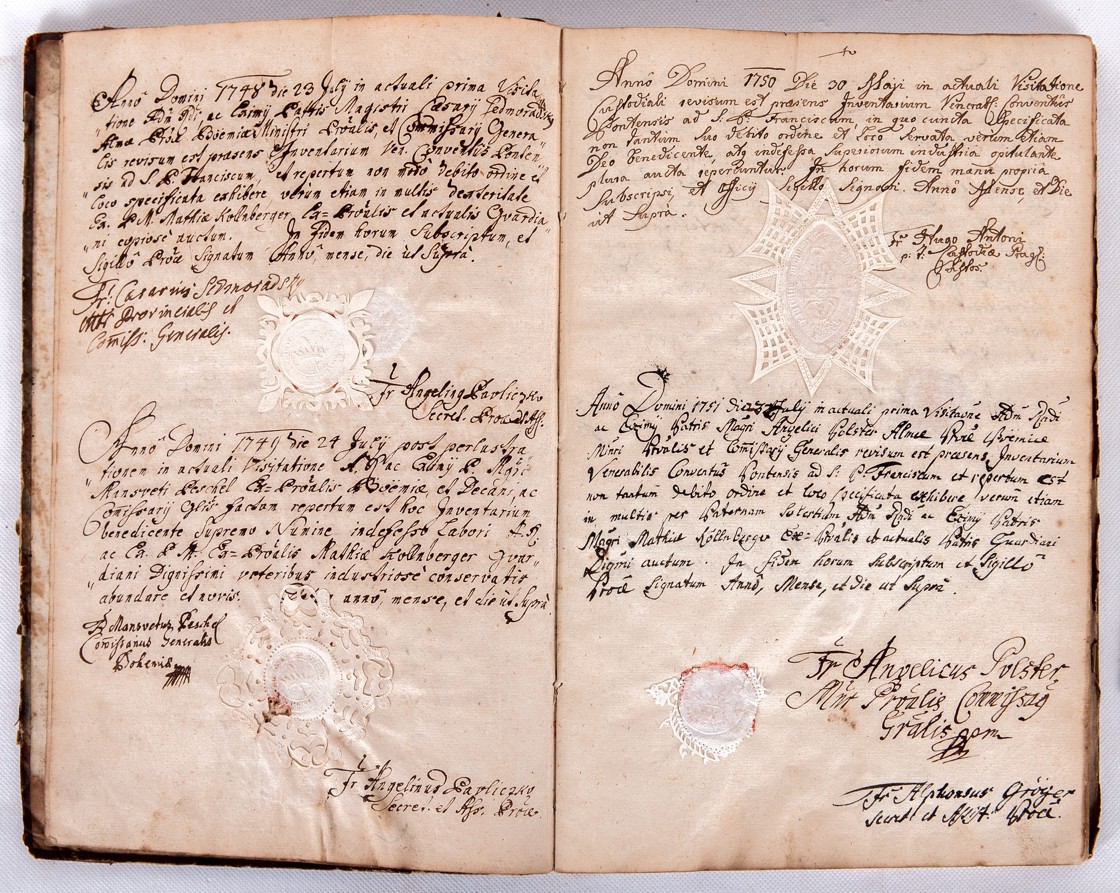 Anno Domini 1748 die 23 July in actuali prima Visita
tione Adm Rdi, ac Eximy Patris Magistri Cæsarij Sedmoradsky
Almæ Pröæ Boëmiæ Ministri Pröalis, et Commissarij Genera
lis revisum est præsens Inventarium Ven. Conventûs Ponten
sis ad S. P. Franciscum, et repertum non modò debito ordine et
loco specificata exhibere, verùm etiam in multis dexteritate
Ex. P. M. Mathiæ Kollnberger, Ex=Pröalis et actualis Guardia
ni exposè auctum. In fidem horum Subscriptum, et
Sigillô Pröæ Signatum Annô, mense, die ut Suprà.
Fr: Cæsarius Sedmoradsky
Mtr Provincialis et
Com̃iss: Generalis.
Fr Angelinus Pavliczko
Secret. Proæ et Ass.
Anno Domini 1749 die 24 July post perlustra
tionem in actuali Visitatione A. R. ac Eximy P. Mgri
Mansveti Peschel Ex=Pröalis Boëmiæ, et Decani, ac
Comissarij Glis factam repertum est hoc Inventarium
benedicente Supremo Numine indefesso Labori A. R.
ac Ex. P. M. Ex=Pröalis Mathiæ Kollnberger Guar
diani Dignissimi veteribus industriosè conservatis
abundare et novis. anno, mense, et die ut Suprà
Fr Mansvetus Peschel
Commissarius Generalis
Bohemiæ
Fr Angelinus Pavliczko
Secret: et Ass. Pröæ.
Annô Domini 1750 Die 30 Maji in actuali Visitatione
Custodiali revisum est præsens Inventarium Venerab: Conventûs
Pontensis ad S. P. Franciscum, in quo cuncta Specificata
non tantùm suo debito ordine et loco servata, verùm etiam
Deo benedicente, atq indefessa Superiorum industria opitulante
plura aucta reperiuntur. In horum fidem manu propria
Subscripsi, et Officij Sigillo Signavi. Annô Mense, et Die
ut supra.
Fr Hugo Antoni
p. t. Custodiæ Prag:
Custos.
Anno Domini 1751 die July in actuali prima Visitatione Adm Rndi
ac Eximy Patris Magri Angelici Polster Almæ Pröæ Boëmiæ
Minri Pröalis et Comissarij Generalis revisum est præsens Inventarium
Venerabilis Conventûs Pontensis ad S. P. Franciscum et repertum est
non tantum debito ordine et loco specificata exhibere verùm etiam
in multis per Paternam Solertiam Adm Rndi ac Eximy Patris
Magri Mathiæ Köllnberger Ex=Pröalis et actualis Patris Guardiani
Digmi auctum. In fidem horum Subscriptum et Sigillô
Pröæ Signatum Annô, Mense, et die ut Suprà.
Fr Angelicus Polster
Mnr Pröalis Commissarij
Gralis
Fr Alphonsus Gröger
Secret et Assist: Pröæ.